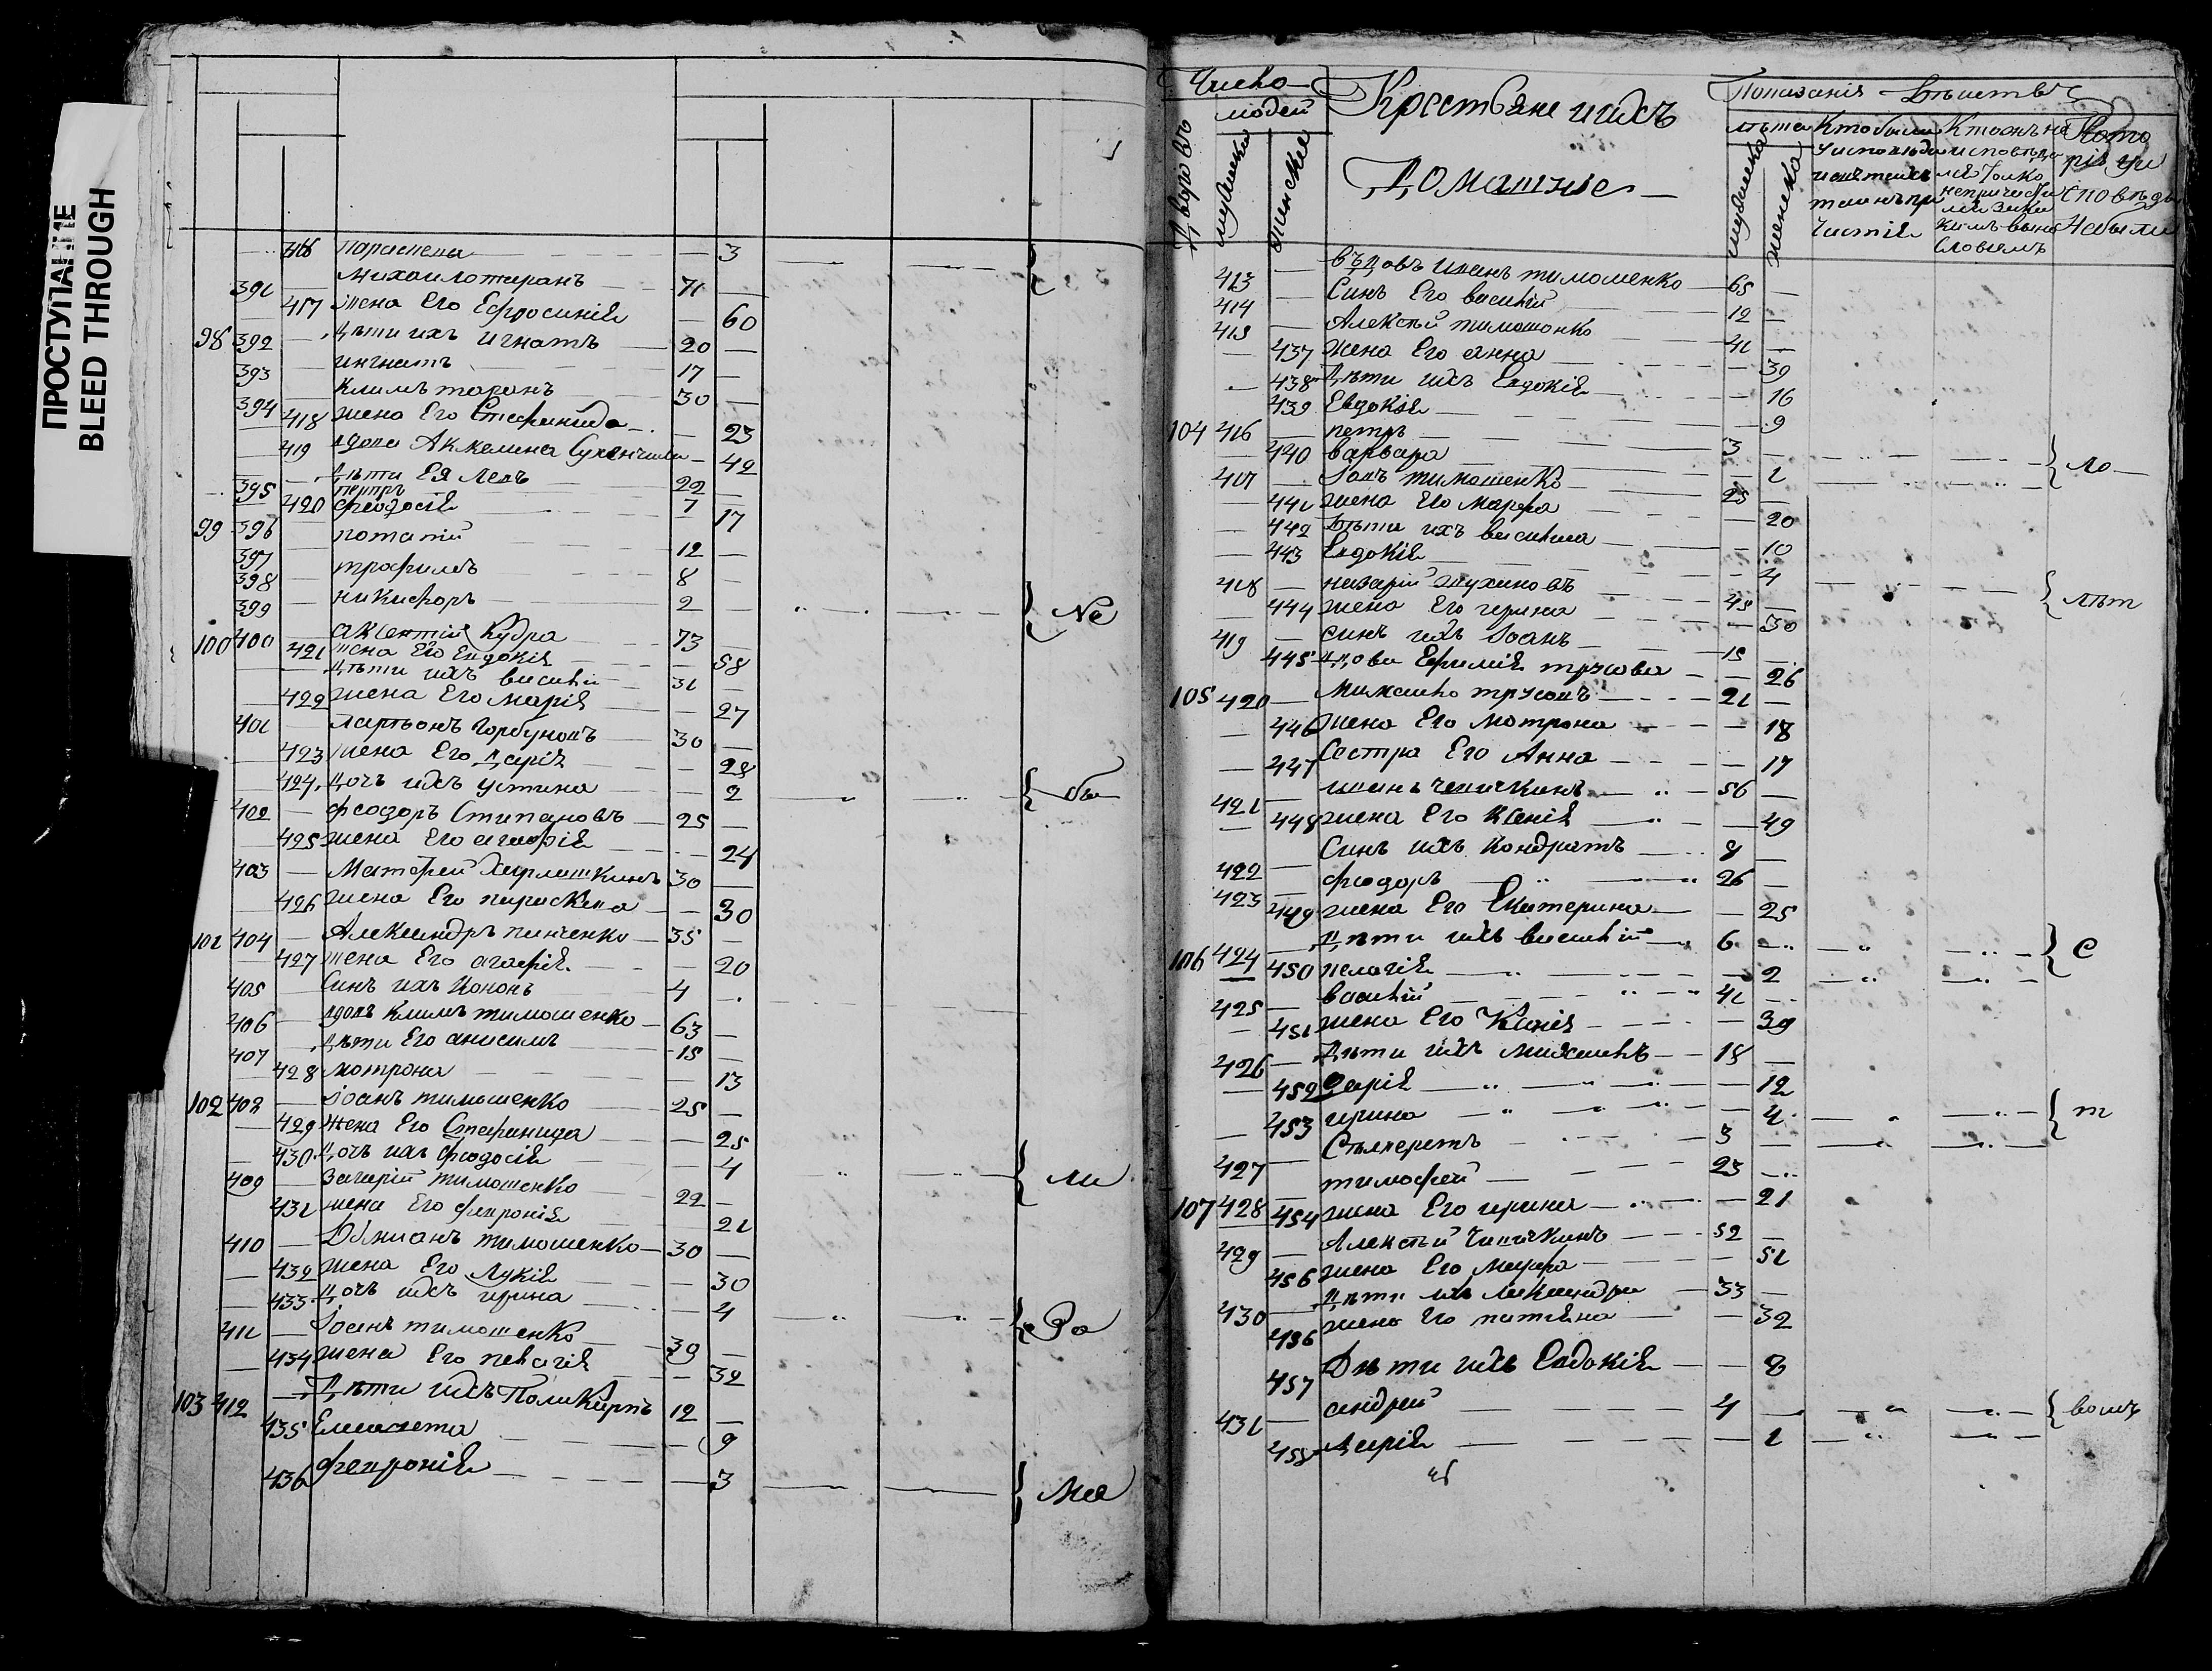 ПРОСТУПАНИЕ
BLEED THROUGH
416 параскева 3
391 михаило таранъ 71
417 жена Его Ефросинія 60
98 392 дѣти ихъ игнатъ 20
393 игнатъ 17
394 климъ таранъ 30
418 жена Его Стефанида 23
419 вдова Акилина 42
395 дѣти Ея Левъ 22
петръ 7
420 феодосія 17
99 396 потапій 12
397 трофимъ 8
398 никифоръ 2
399 Не
100 400 аксентій Кудра 73
421 жена Его Евдокія 58
дѣти ихъ василій 31
422 жена Его марія 27
401 ларіонъ Горбуновъ 30
423 жена Его Дарія 28
424 дочь ихъ устина 2 бы
402 феодоръ Стипановъ 25
425 жена Его агафія 24
403 Матфей 30
426 жена Его параскева 30
101 404 Александръ панченко 35
427 жена Его агафія 20
405 Синъ ихъ Кононъ 4
406 вдовъ климъ тимошенко 63
407 дѣти Его анисимъ 15
428 мотрона 13
102 408 Іоанъ тимошенко 25
429 Жена Его Стефанида 25
430 дочъ ихъ феодосія 4
409 Захарій тимошенко 22 ли
431 жена Его февронія 21
410 Даміанъ тимошенко 30
432 жена Его Лукія 30
433 дочъ ихъ ирина 4
411 Іоанъ тимошенко 39 За
434 жена Его пелагія 32
103 412 Дѣти ихъ Поликарпъ 12
435 Елисавета 9
436 февронія 3 Мал
Число
людей
Крестьяне и ихъ
Домашніе
Показанія
дворовъ
мужеска
женска
лѣта
мужеска
женска
Кто были
у исповѣди
и святыхъ
таинъ при
частія
Кто онъ не
исповѣда
лся Толко
непричасти
лся за ка
кимъ вино
словіемъ
Кото
ріе у и
споведи
Небыли
413 вдовъ иванъ тимошенко 65
414 Синъ Его василій 12
415 Алексѣй тимошенко 41
437 жена Его анна 39
438 дѣти ихъ Евдокія 16
439 Евдокія 9
104 416 петръ 3
440 варвара 1 ло
417 Іоанъ тимошенко 25
441 жена Его марфа 20
442 Дѣти ихъ василиса 10
443 Евдокія 4
418 назарій 45 лѣт
444 жена Его ирина 30
419 синъ ихъ Іоанъ 15
445 вдова Ефимія 26
105 420 Михаило 21
446 жена Его мотрона 18
447 Сестра Его Анна 17
421 иванъ 56
448 жена Его Ксенія 49
422 Синъ ихъ Кондратъ 9
423 феодоръ 26
449 жена Его Екатерина 25
106 424 дѣти ихъ василій 6 С
450 пелагія 2
425 василій 41
451 жена Его Ксенія 39
426 дѣти ихъ михаилъ 18
452 Дарія 12
453 ирина 4 т
427 3
107 428 тимофей 23
454 жена Его ирина 21
429 Алексѣй 52
456 жена Его марфа 51
430 дѣти ихъ Александръ 33
456 жена Его татіана 32
457 Дѣти ихъ Евдокія 8
431 андрей 4 вомъ
458 Дарія 1